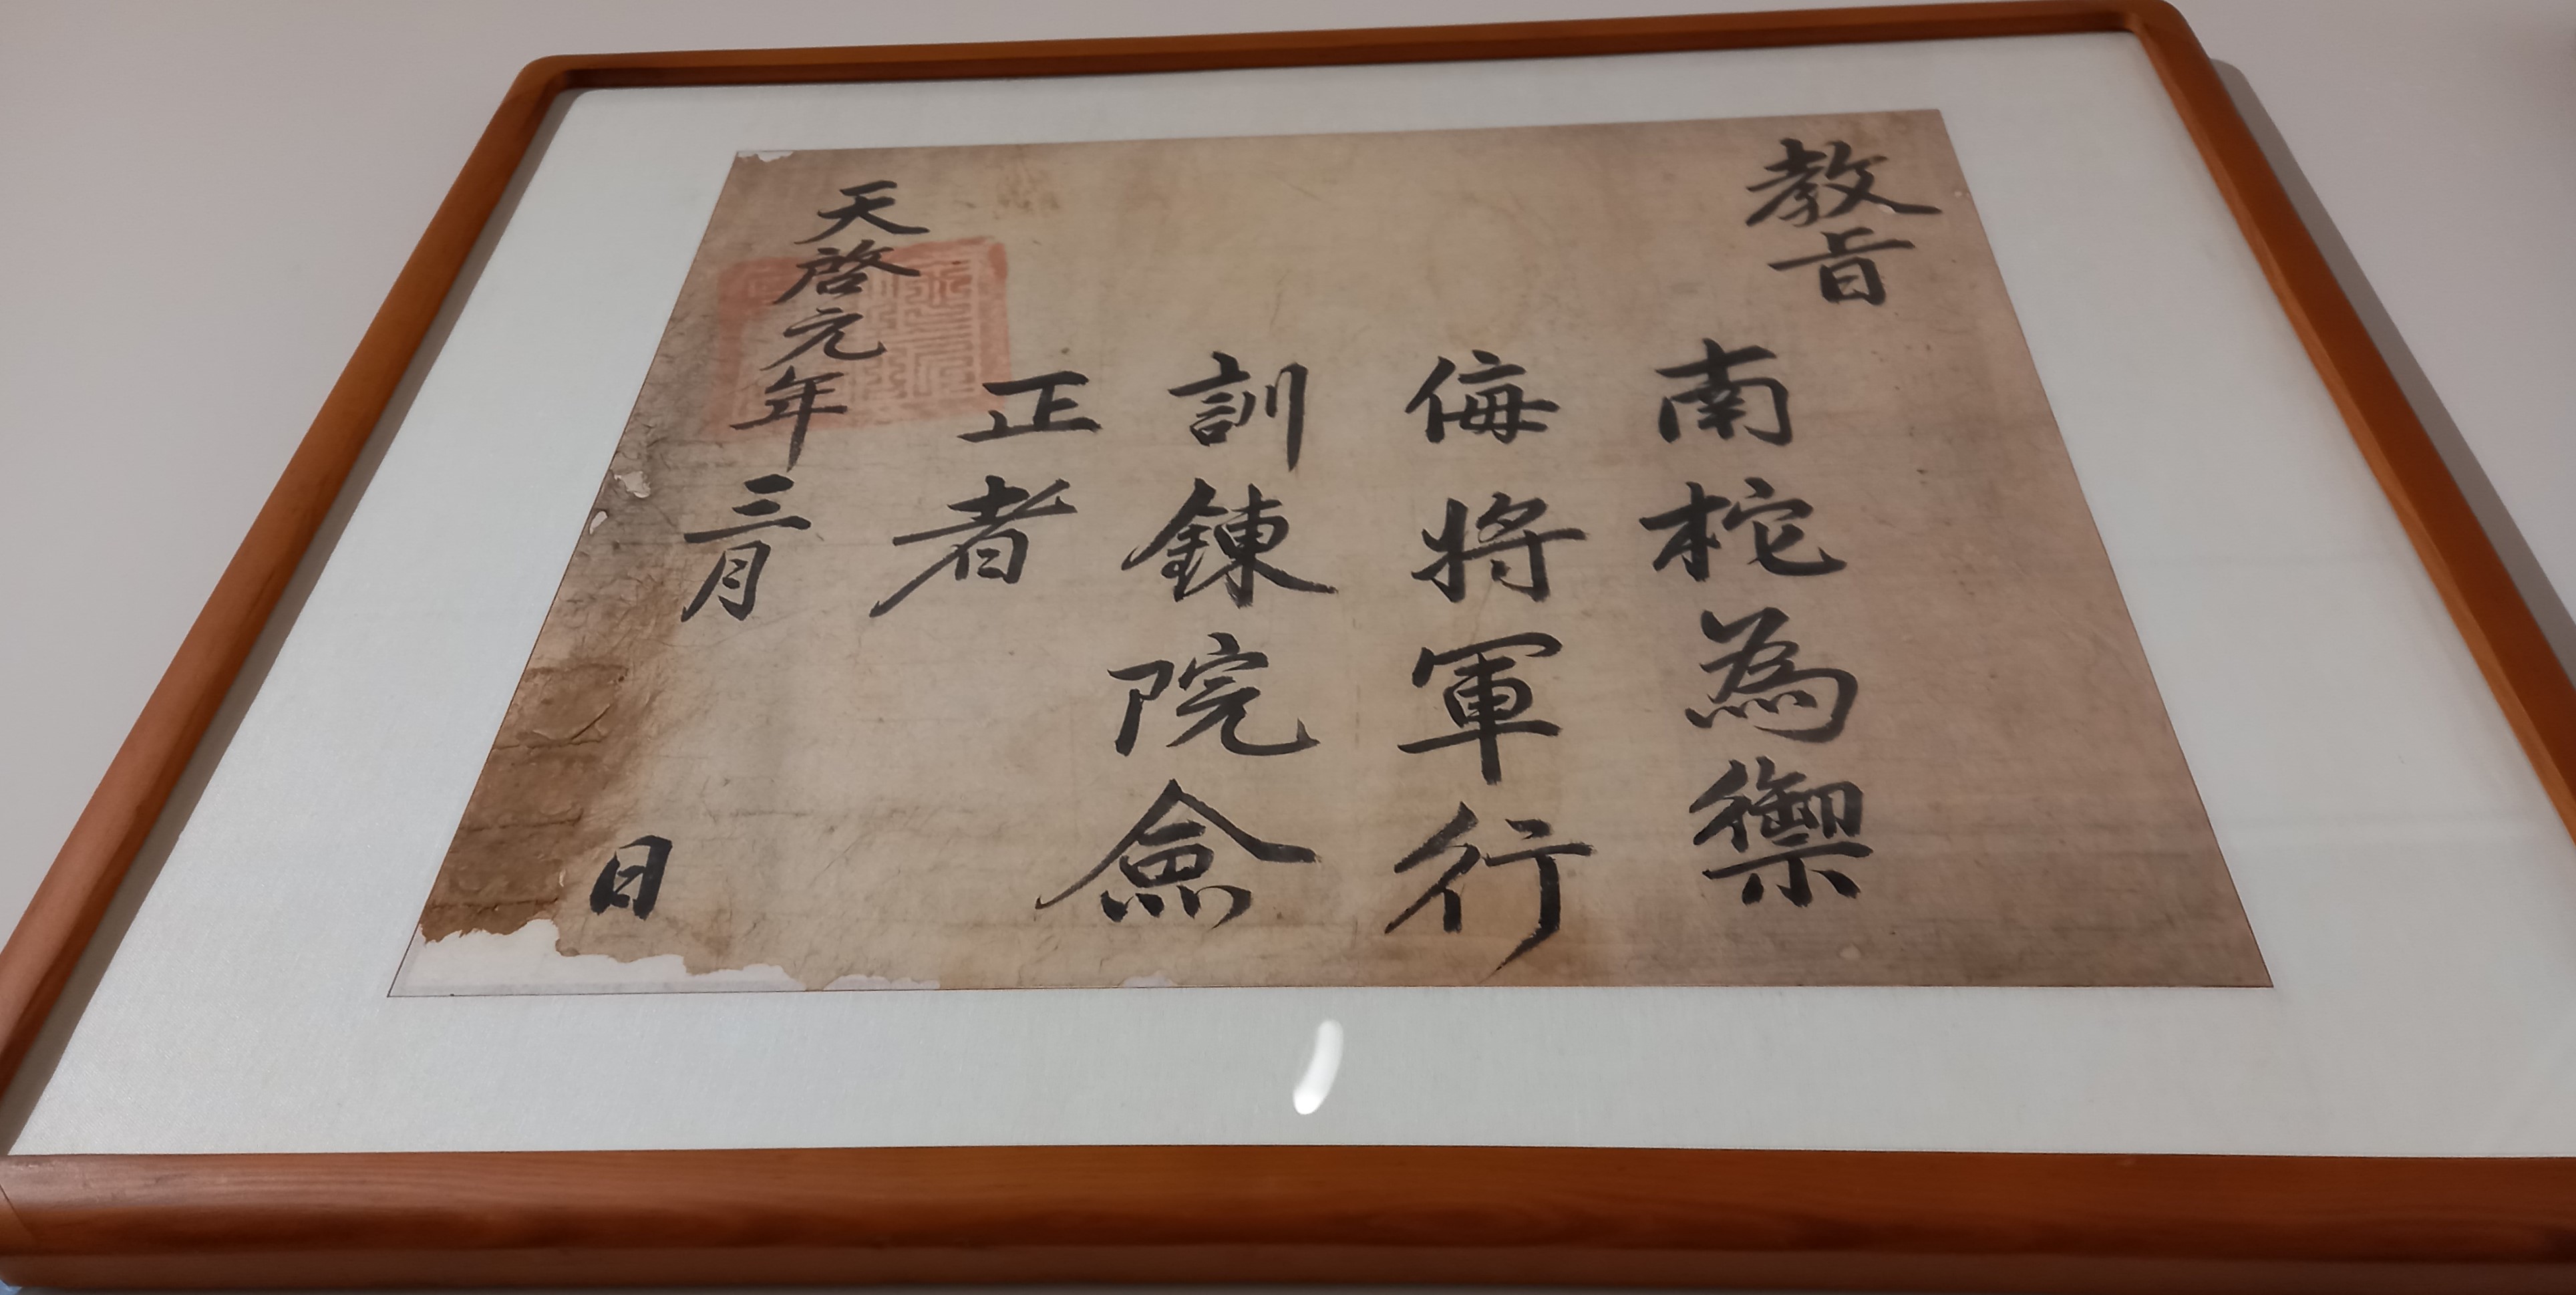 教旨
南柁為禦
侮將軍行
訓鍊院僉
正者
天啓元年三月 日